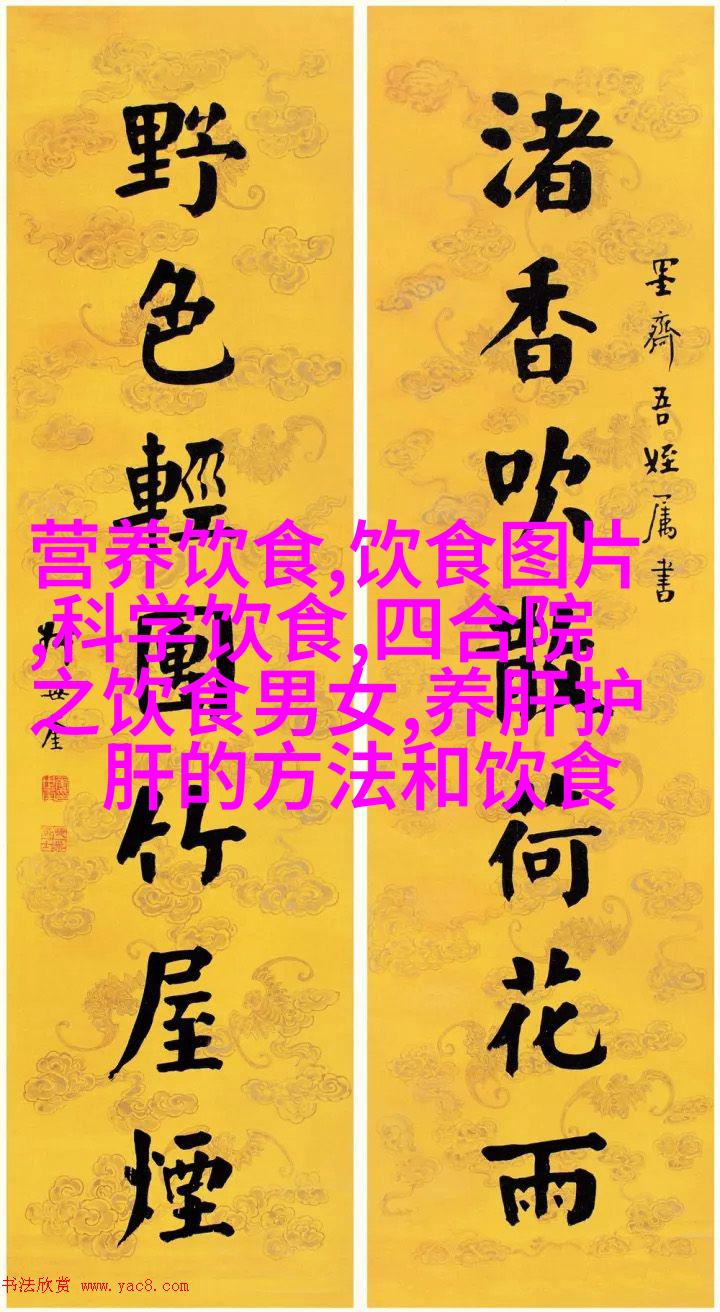 渚香吹散荷花雨
墨齋吾姪属書
野色輕竹屋煙
世奎
营养饮食,饮食图片
,科学饮食,四合院
之饮食男女,养肝护
肝的方法和饮食
书法欣赏 www.yac8.com